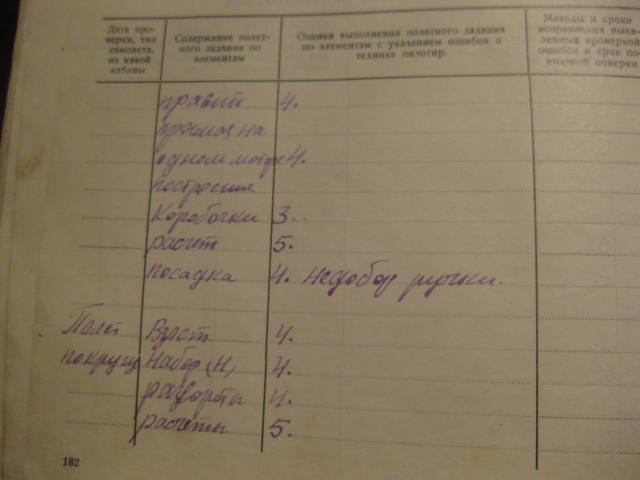 Дата про-
верки, тип
самолета,
из какой
кабины
Содержание полет-
ного задания по
элементам
Оценка выполнения полетного задания
по элементам с указанием ошибок в
технике пилотир.
Методы и сроки
исправления выяв-
ленных проверкой
ошибок и срок по-
вторной поверки
правый 4.
прямая на
одном моторе 4.
построение
Коробочки 3..
расчет 5.
посадка 4. недобор ручки.
Полет Взлет 4.
по кругу Набор (Н) 4.
развороты 4.
расчеты 5.
182